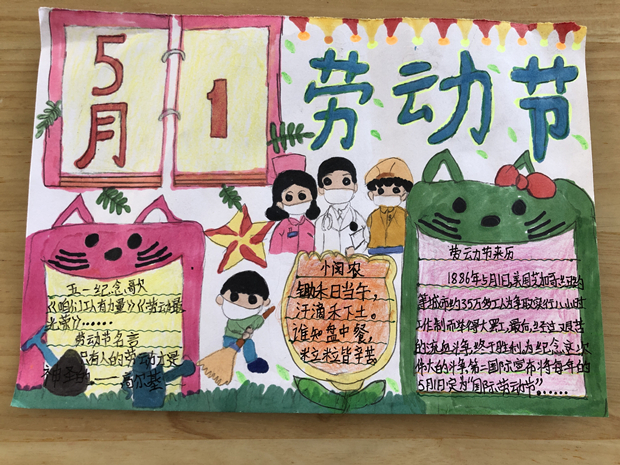 5
月
1
劳动节
五一纪念歌
《咱们工人有力量》《劳动最
光荣》……
劳动节名言
只有人的劳动才是
神圣 高尔基
悯农
锄禾日当午,
汗滴禾下土。
谁知盘中餐,
粒粒皆辛苦
劳动节来历
1886年5月1日,美国芝加哥
等城市的35万多名工人为争取实行八小时
工作制而举行大罢工,最后,经过艰苦
的流血斗争,终于胜利,为纪念这次
伟大的斗争,第二国际宣布将每年的
5月1日定为“国际劳动节”……